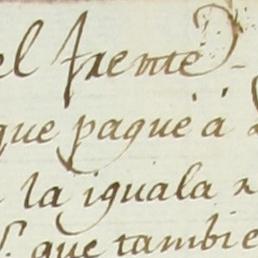 el frente
que pague á
la iguala
que tambie